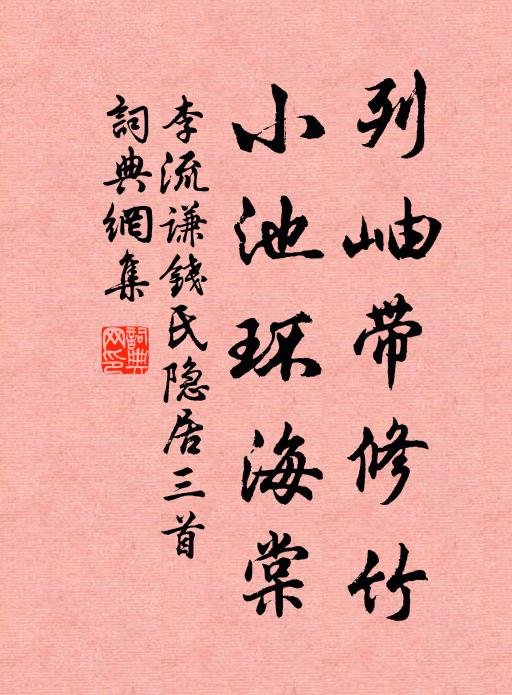 列岫带修竹
小池环海棠
李流谦錢氏隐居三首
詞典網集
詞典網印